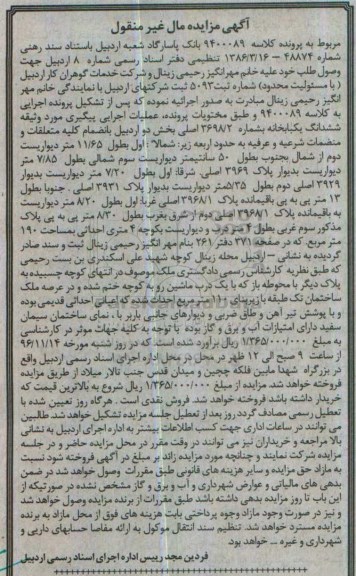 آگهی مزایده مال غیر منقول
مربوط به پرونده کلاسه ۹۴۰۰۰۸۹ بانک پاسارگاد شعبه اردبیل باستناد سند رهنی
شماره ۴۸۸۷۴ – ۱۳۸۶/۳/۱۶ تنظیمی دفتر اسناد رسمی شماره ۸ اردبیل جهت
وصول طلب خود علیه خانم مهرانگیز رحیمی زینال و شرکت خدمات گوهران کار اردبیل
( با مسئولیت محدود) شماره ثبت ۵۰۹۳ ثبت شرکتهای اردبیل با نمایندگی خانم مهر
انگیز رحیمی زینال مبادرت به صدور اجرائیه نموده که پس از تشکیل پرونده اجرایی
به کلاسه ۹۴۰۰۰۸۹ و طبق محتویات پرونده، عملیات اجرایی پیگیری مورد وثیقه
ششدانگ یکبابخانه بشماره ۳۶۹۸/۲ اصلی بخش دو اردبیل بانضمام کلیه متعلقات و
منضمات شرعیه و عرفیه به حدود اربعه زیر: شمالا : اول بطول ۱۱/۶۵ متر دیواریست
دوم از شمال بجنوب بطول ۵۰ سانتیمتر دیواریست سوم شمالی بطول ۷/۸۵ متر
دیواریست بدیوار پلاک ۳۹۶۹ اصلی. شرقا: اول بطول ۷/۲۰ متر دیواریست بدیوار
۳۹۲۹ اصلی دوم بطول ۵/۳۵متر دیواریست بدیوار پلاک ۳۹۳۱ اصلی . جنوبا بطول
۱۳ متر پی به پی باقیمانده پلاک ۳۹۶۸/۱ اصلی غربا: اول بطول ۸/۲۰ متر دیواریست
به باقیمانده پلاک ۳۹۶۸/۱ اصلی دوم از شرق بغرب بطول ۸/۳۰ متر پی به پی پلاک
مذکور سوم غربی بطول ۴ متر درب و دیواریست بکوچه ۴ متری احداثی بمساحت ۱۹۰
متر مربع. که در صفحه ۳۷۱ دفتر ۲۶۱ بنام مهر انگیز رحیمی زینال ثبت و سند صادر
گردیده به نشانی – اردبیل محله زینال کوچه شهید علی اسکندری بن بست رحیمی
که طبق نظریه کارشناس رسمی دادگستری ملک موصوف در انتهای کوچه چسبیده به
پلاک دیگر با محوطه باز که با یک درب ماشین رو به کوچه ختم شده و در عرصه ملک
ساختمان تک طبقه با زیربنای ۱۱۰ متر مربع احداث شده که اعیانی احداثی قدیمی بوده
و با پوشش تیر آهن و طاق ضربی و دیوارهای جانبی باربر با ، نمای ساختمان سیمان
سفید دارای امتیازات آب و برق و گاز بوده با توجه به کلیه جهات موثر در کارشناسی
به مبلغ ۱/۳۶۵/۰۰۰/۰۰۰ ریال برآورد شده است. که در روز شنبه مورخه ۹۶/۱۱/۱۴
از ساعت ۹ صبح الی ۱۲ ظهر در محل در محل اداره اجرای اسناد رسمی اردبیل واقع
در بزرگراه شهدا مابین فلکه چچین و میدان قدس جنب تالار میلاد از طریق مزایده
فروخته خواهد شد. مزایده از مبلغ ۱/۳۶۵/۰۰۰/۰۰۰ ریال شروع به بالاترین قیمت که
خریدار داشته باشد فروخته خواهد شد. فروش نقدی است . هرگاه روز تعیین شده با
تعطیل رسمی مصادف گردد روز بعد از تعطیل جلسه مزایده تشکیل خواهد شد. طالبین
می توانند در ساعات اداری جهت کسب اطلاعات بیشتر به اداره اجرای اردبیل به نشانی
بالا مراجعه و خریداران نیز می توانند در وقت مقرر در محل مزایده حاضر و در جلسه
مزایده شرکت نمایند و چنانچه مورد مزایده زائد بر مبلغ در آگهی فروخته شود نسبت
به مازاد حق مزایده و سایر هزینه های قانونی طبق مقررات وصول خواهد شد در ضمن
بدهی های مالیاتی و عوارض شهرداری و آب و برق و گاز مشخص نشده در صورتیکه از
این باب تا روز مزایده بدهی داشته باشد طبق مقررات از برنده مزایده وصول خواهد شد
و نیز در صورت وجود مازاد وجوه پرداختی بابت هزینه های فوق از محل مازاد به برنده
مزایده مسترد خواهد شد. تنظیم سند انتقال موکول به ارائه مفاصا حسابهای دارایی و
شهرداری و غیره ... خواهد بود.
فردین مجد رییس اداره اجرای اسناد رسمی اردبیل